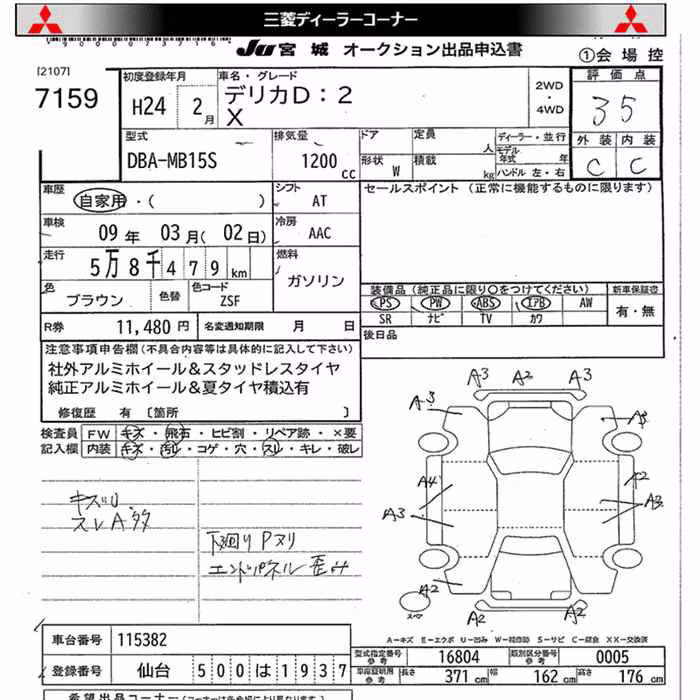 三菱ディーラーコーナー
JU宮城 オークション出品申込書
①会場控
[2107]
7159
初度登録年月
H24 2月
車名・グレード
デリカD:2
X
2WD
・
4WD
評価点
35
型式
DBA-MB15S
排気量
1200cc
ドア
形状 W
定員 人
積載 kg
ディーラー・並行
モデル年式 年
ハンドル 左・右
外装 内装
C C
車歴
自家用・( )
シフト
AT
セールスポイント (正常に機能するものに限ります)
車検
09年 03月(02日)
冷房
AAC
走行
5万8千479km
燃料
ガソリン
色
ブラウン
色替
色コード
ZSF
装備品 (純正品に限り○をつけてください)
PS PW ABS エアB AW
SR ナビ TV カワ
新車保証書
有・無
R券 11,480円
名変通知期限 月 日
後日品
注意事項申告欄(不具合内容等は具体的に記入して下さい)
社外アルミホイール&スタッドレスタイヤ
純正アルミホイール&夏タイヤ積込有
修復歴 有 〔箇所 〕
検査員記入欄
FW キズ・飛石・ヒビ割・リペア跡・×要
内装 キズ・汚レ・コゲ・穴・スレ・キレ・破レ
下廻りPヌリ
エンドパネル歪み
A3 A2 A3
A3 A3
A4 A2
A3 A3
A2
A2 A2
スペア
A-キズ E-エクボ U-凹み W-補修跡 S-サビ C-腐食 XX-交換済
車台番号 115382
登録番号 仙台 500は1937
型式指定番号参考 16804
類別区分番号参考 0005
車両採寸参考 長さ 371cm 幅 162cm 高さ 176cm
希望出品コーナー